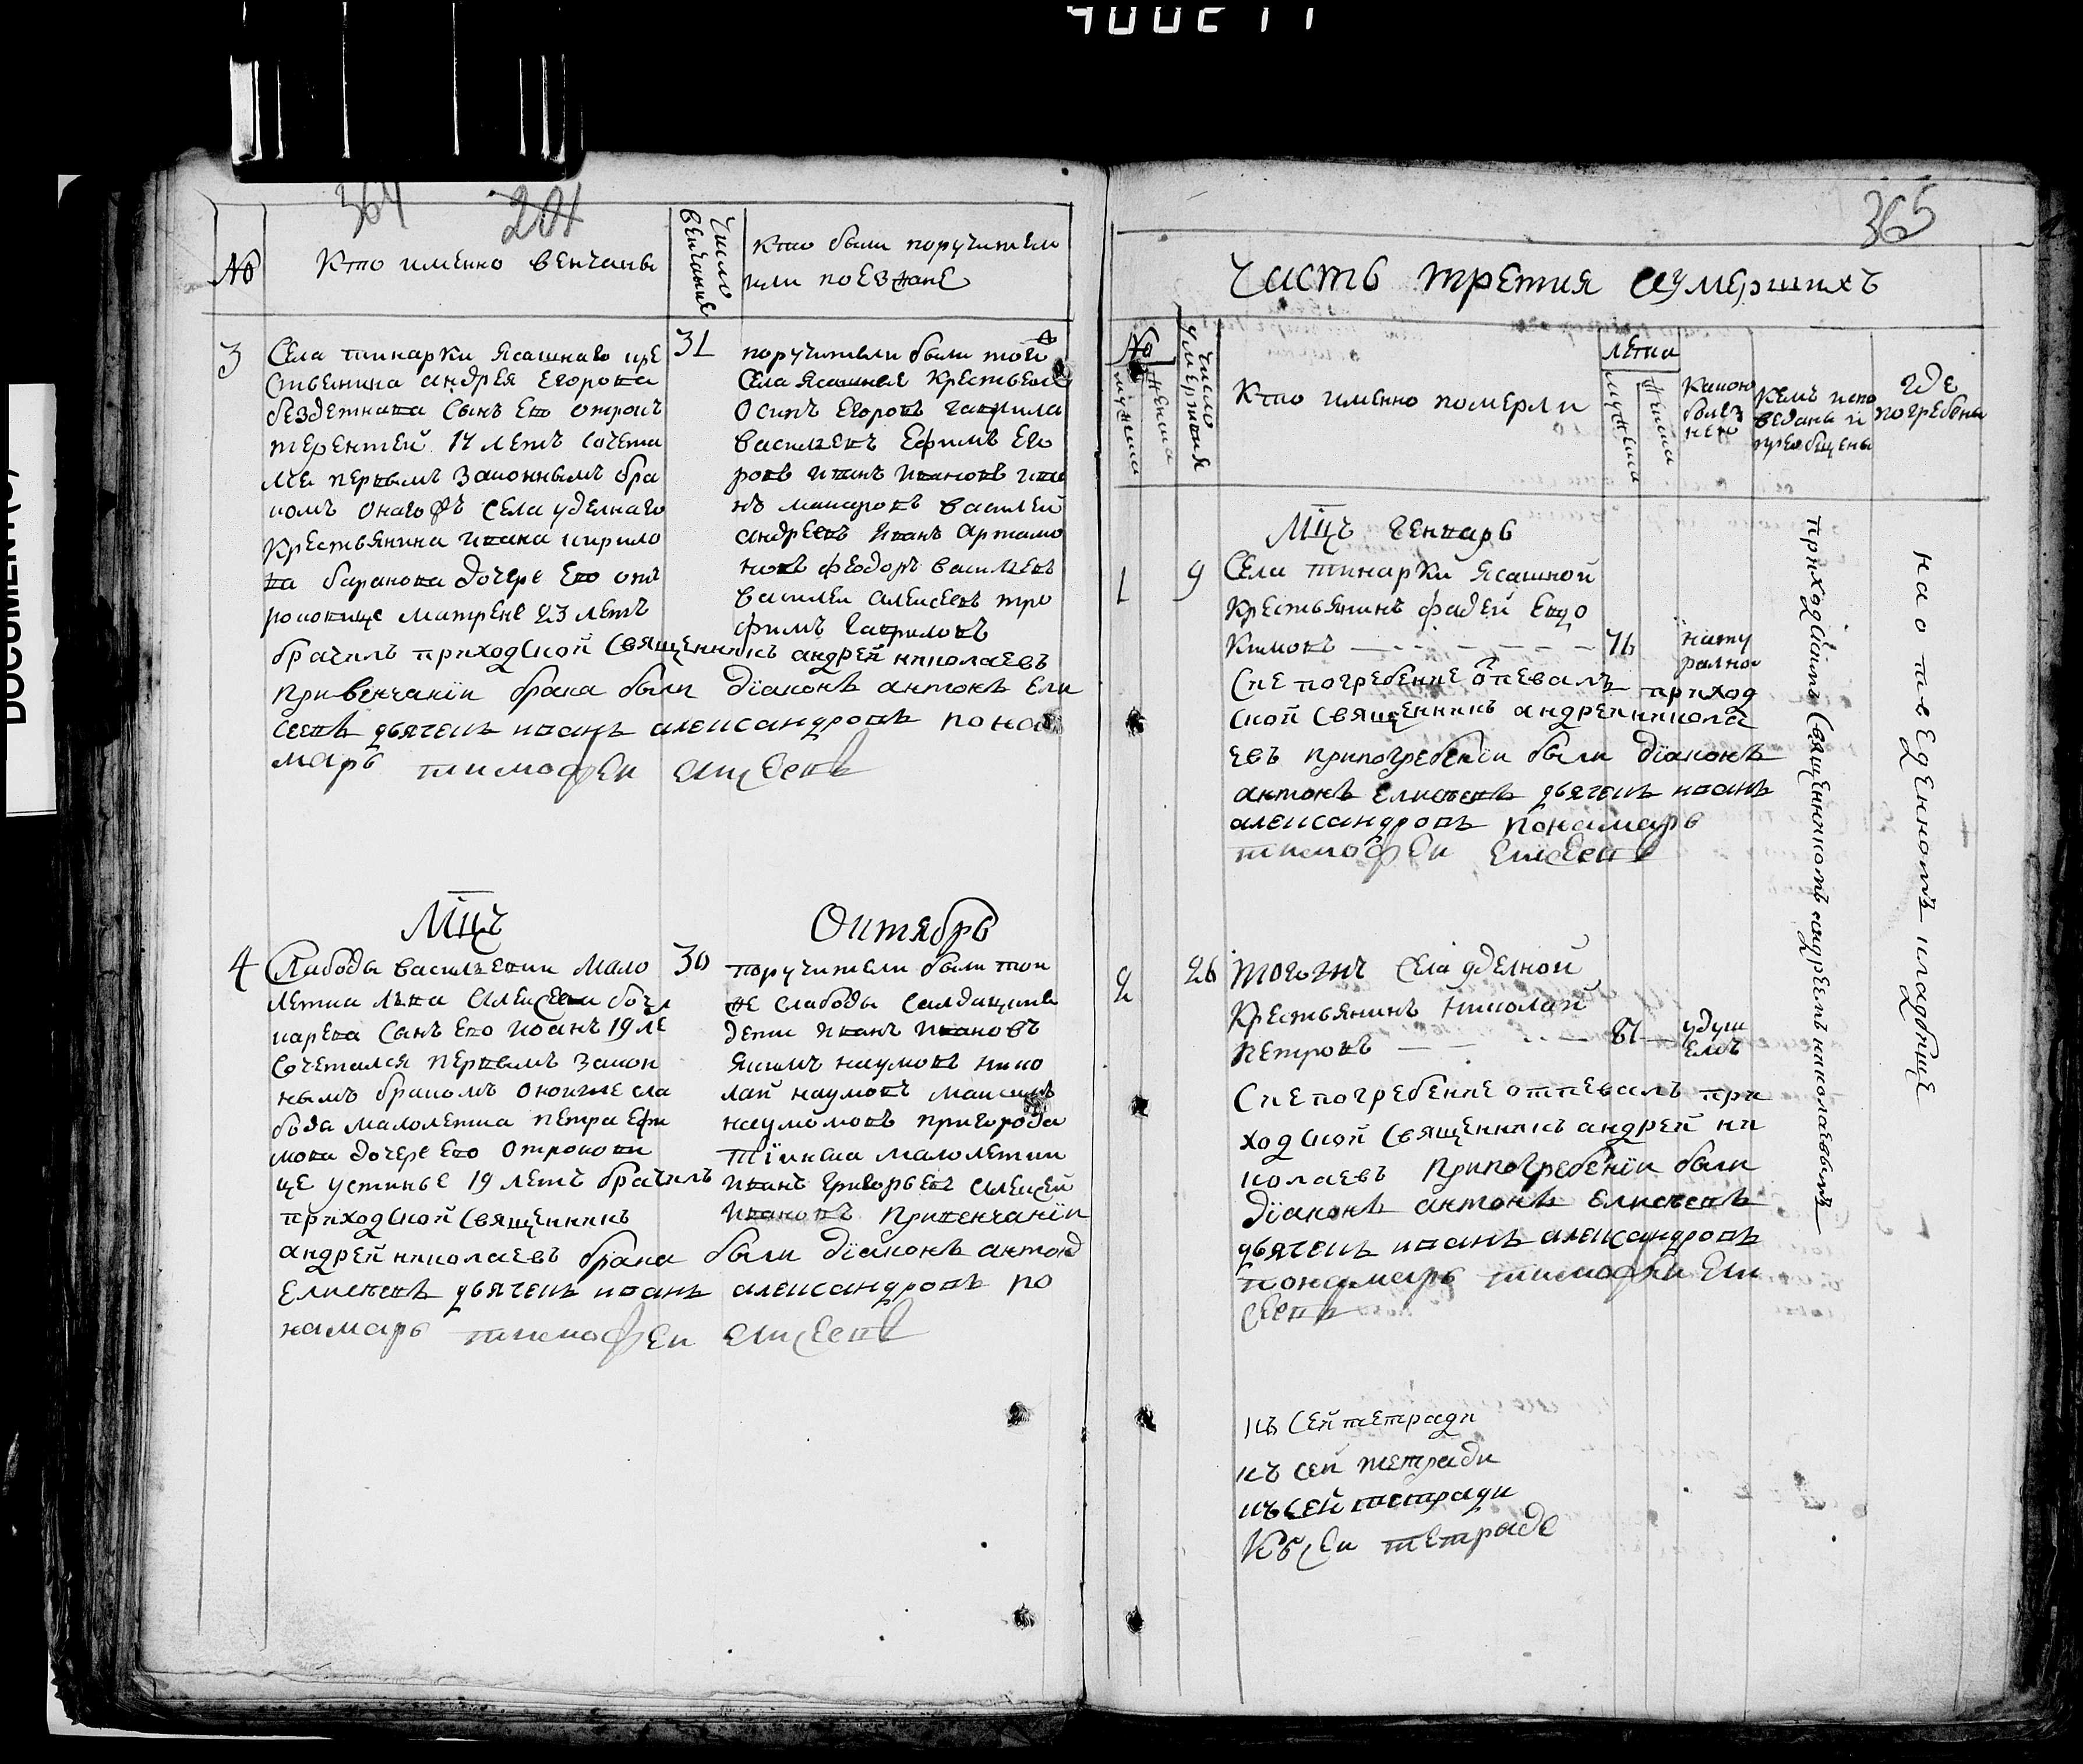 364 201
№
Кто именно венчаны
Число венчание
кто были поручители
или поезжане
3
Села тинарки Ясашнаго кре
ствянина андрея Егорова
безденнава Сынъ Ево отрокъ
терентей 17 летъ Сочета
лся первымъ Законнымъ бра
комъ онагожъ села уделнаго
Крествянина ивана кирило
ва баранова дочере Ево отъ
роковице матрене 23 летъ
31
поручители были того ж
села ясашные Крествяне
Осипъ Егоровъ гаврила
васильевъ Ефимъ Его
ровъ иванъ ивановъ ива
нъ макаровъ василей
андреевъ Иванъ Артамо
новъ феодоръ васильевъ
василеи алексеевъ тро
фимъ Гавриловъ
брачилъ приходской Священникъ андрей николаевъ
при венчанїи брака были дїаконъ антонъ Ели
сеевъ дьячекъ иванъ александровъ понас
марь тимофеи елисеевъ
Мцъ Октябрь
4
Слабоды васильевки Мало
летка лва Алексеева бочк
карева Сынъ Ево Иоанъ 19 ле
Сочетался первымъ Закон
нымъ бракомъ онойже сла
боды малолетка петра Ефи
мова дочере Ево Отрокови
це устинье 19 летъ брачилъ
приходской Священникъ
30
поручители были той
же слабоды Салдацкие
дети Иванъ Ивановъ
Якимъ наумовъ нико
лай наумовъ максимъ
наумомовъ пригорода
Тїинска малолетки
Иванъ Григорьевъ алексей
Ивановъ При венчанїи
андрей николаевъ брака были дїаконъ антонъ
Елисеевъ дьячекъ иванъ александровъ по
намарь тимофеи елисеевъ
365
Часть третия оумершихъ
№
мужеска
женска
число умертвия
Кто именно померли
лета
мужеска
женска
какою
болез
нею
Кемъ испо
веданы и
преобщены
где
погребены
Мцъ Генварь
1
9
Села тинарки Ясашной
Крествянинъ фадей Евдо
Кимовъ
71
нату
ралною
Сие погребение опевалъ приход
ской Священникъ андреи никола
евъ при погребенїи были дїаконъ
антонъ Елисеевъ дьячекъ иванъ
александровъ понамарь
тимофеи Елисеевъ
2
26
тогожъ Села уделной
Крествянинъ николай
петровъ
87
удуш
емъ
Сие погребение отпевалъ при
ходской Священникъ андрей ни
колаевъ При погребенїи были
дїаконъ антонъ Елисеевъ
дьячекъ иванъ александровъ
понамарь тимофеи Ели
сеевъ
приходскимъ Священникомъ андреемъ николаевымъ
на отведенномъ кладбище
къ сей тетради
къ сей тетради
къ сей тетради
Къ сеи тетраде
DOCUMENT(S)